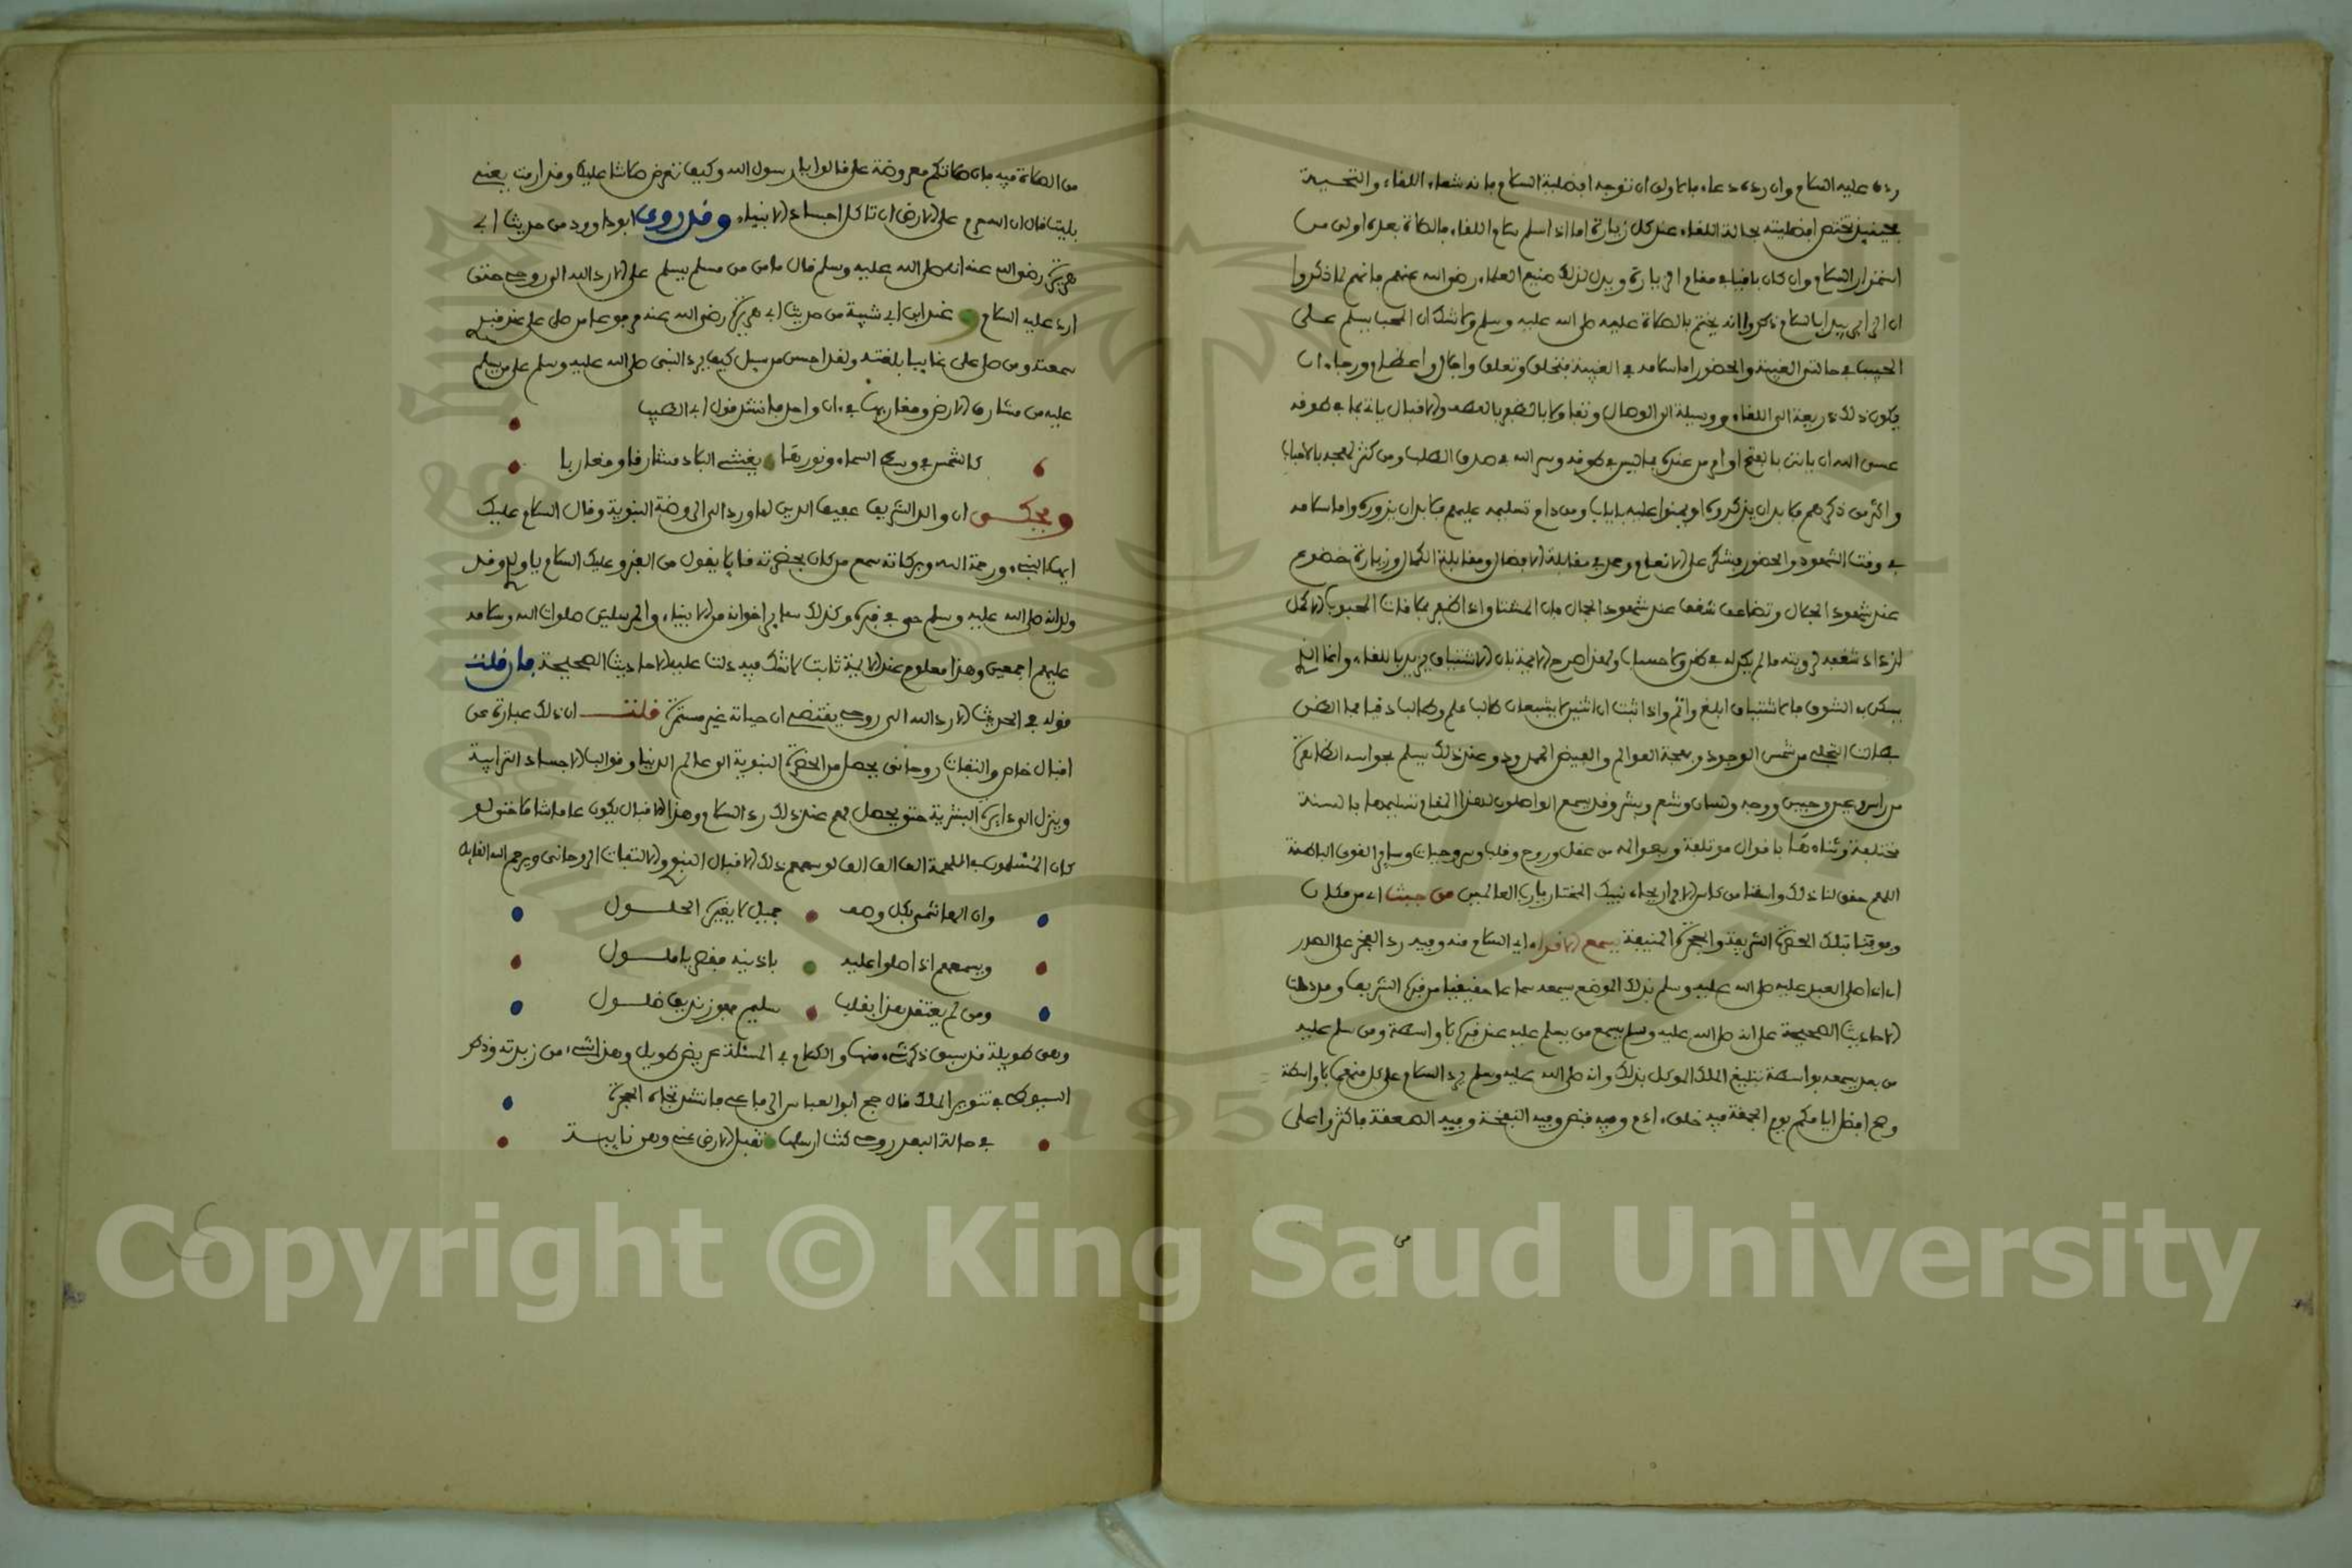 رده عليه السلام وان رده دعاء فالاولى ان توجه افضلية السلام بانه شعار اللقاء والتحية
فحينئذ تختص افضليته بحالة اللقاء عند كل زيارة اما اذا سلم سلام اللقاء فالصلاة بعده اولى من
استمرار السلام وان كان باقيا في مقام الزيارة ويدل لذلك صنيع العلماء رضي الله عنهم فانهم لما ذكروا
ان الزاير يبدا بالسلام ذكروا انه يختم بالصلاة عليه صلى الله عليه وسلم ولا شك ان المحب يسلم على
الحبيب في حالتي الغيبة والحضور اما سلامه في الغيبة فتخلق وتعلق واجلال واعظام ورجاء ان
يكون ذلك ذريعة الى اللقاء ووسيلة الى الوصال وتفاولا بالظفر بالعهد والاقبال
عسى الله ان ياتي بالفتح او امر من عنده
واكثر من ذكرهم فلا بد ان يذكروه او يمنوا عليه بايات ومن دام تسليمه عليهم فلا بد ان يزوره واما سلامه
في وقت الشهود والحضور فشكر على الانعام وحمد في مقابلة الافضال ومقابلة الكمال وزيارة خضوع
عند شهود الجمال وتضاعف شغف عند شهود الجمال فان المشتاق اذا ظفر بملاقات المحبوب الاكمل
ازداد شغفه لرويته ما لم يكن له في ولا حساب ولهذا صرح الايمة بان الاشتياق يزيد باللقاء وانما الذي
يسكن به الشوق فالاشتياق ابلغ واتم واذا ثبت ان اثنين لا يشبعان طالب علم وطالب دنيا فما الظن
بطالب التجلي من شمس الوجود وبهجة العوالم والفيض الممدود وعند ذلك يسلم بحواسه الظاهرة
من راس وعين وجبين ووجه ولسان وشعر وبشر وقد يسمع الواصلون لهذا المقام تسليمها بالسنة
مختلفة وثناءها باقوال موتلفة وبعوالمه من عقل وروح وقلب وسر وجنان وساير القوى الباطنة
اللهم حقق لنا ذلك واسقنا من كاس بجاه نبيك المختار يا رب العالمين من حيث اي من مكان
وموقف بتلك الحضرة الشريفة والحجرة المنيفة يسمع الاقوا اي السلام منه وفيه رد العجز على الصدر
اي اذا صلى العبد عليه صلى الله عليه وسلم بذلك الموضع يسمعه سماعا حقيقيا من قبره الشريف وقد دلت
الاحاديث الصحيحة على انه صلى الله عليه وسلم يسمع من يسلم عليه عند قبره بلا واسطة ومن سلم عليه
من بعد يسمعه بواسطة تبليغ الملك الموكل بذلك وانه صلى الله عليه وسلم يرد السلام على كل منهما بلا واسطة
وصح افضل ايامكم يوم الجمعة فيه خلق ادم وفيه قبض وفيه النفخة وفيه الصعقة فاكثروا على
من
من الصلاة فيه فان صلاتكم معروضة علي قالوا يا رسول الله وكيف تعرض صلاتنا عليك وقد ارمت يعني
بليت قال ان الله حرم على الارض ان تاكل اجساد الانبياء وقد روى ابو داوود من حديث ابي
هريرة رضي الله عنه انه صلى الله عليه وسلم قال ما من من مسلم يسلم علي الا رد الله الي روحي حتى
ارد عليه السلام و عند ابن ابي شيبة من حديث ابي هريرة رضي الله عنه مرفوعا من صلى علي عند قبري
سمعته ومن صلى علي غايبا بلغته ولقد احسن من سيل كيف يرد النبي صلى الله عليه وسلم على من يسلم
عليه من مشارق الارض ومغاربها في ءان واحد فانشد قول ابي الطيب
كالشمس في وسط السماء ونورها يغشى البلاد مشارقا ومغاربا
ويحكى ان والد الشريف عفيف الدين لما ورد الى الروضة النبوية وقال السلام عليك
ايها النبيء ورحمة الله وبركاته سمع من كان بحضرته قايلا يقول من القبر وعليك السلام يا ولدي وقد
ولانه صلى الله عليه وسلم حي في قبره وكذلك ساير اخوانه من الانبياء والمرسلين صلوات الله وسلامه
عليهم اجمعين وهذا معلوم عند الايمة ثابت لا شك فيه دلت عليه الاحاديث الصحيحة فان قلت
قوله في الحديث الا رد الله الي روحي يقتضي ان حياته غير مستمرة قلت ان ذلك عبارة عن
اقبال خاص والتفات روحاني يحصل من الحضرة النبوية الى عالم الدنيا وقوالب الاجساد الترابية
وينزل الى دايرة البشرية حتى يحصل لهم عند ذلك رد السلام وهذا الاقبال يكون عاما شاملا حتى لو
كان المسلمون في اللمحة الف الف الف لوسعهم ذلك الاقبال النبوي والالتفات الروحاني ويرحم الله القايل
وان الهاشمي بكل وصف جميل لا يغيره الحلول
ويسمعهم اذا صلوا عليه باذنيه فقصر يا ملول
ومن لم يعتقد هذا بقلب سليم فهو زنديق ضلول
وهي طويلة قد سبق ذكر شيء منها والكلام في المسئلة عريض طويل وهذا شيء من زبدته وذكر
السيوطي في تنوير الحلك قال حج ابو العباس الرفاعي فانشد تجاه الحجرة
في حالة البعد روحي كنت ارسلها تقبل الارض عني وهي نايبتي